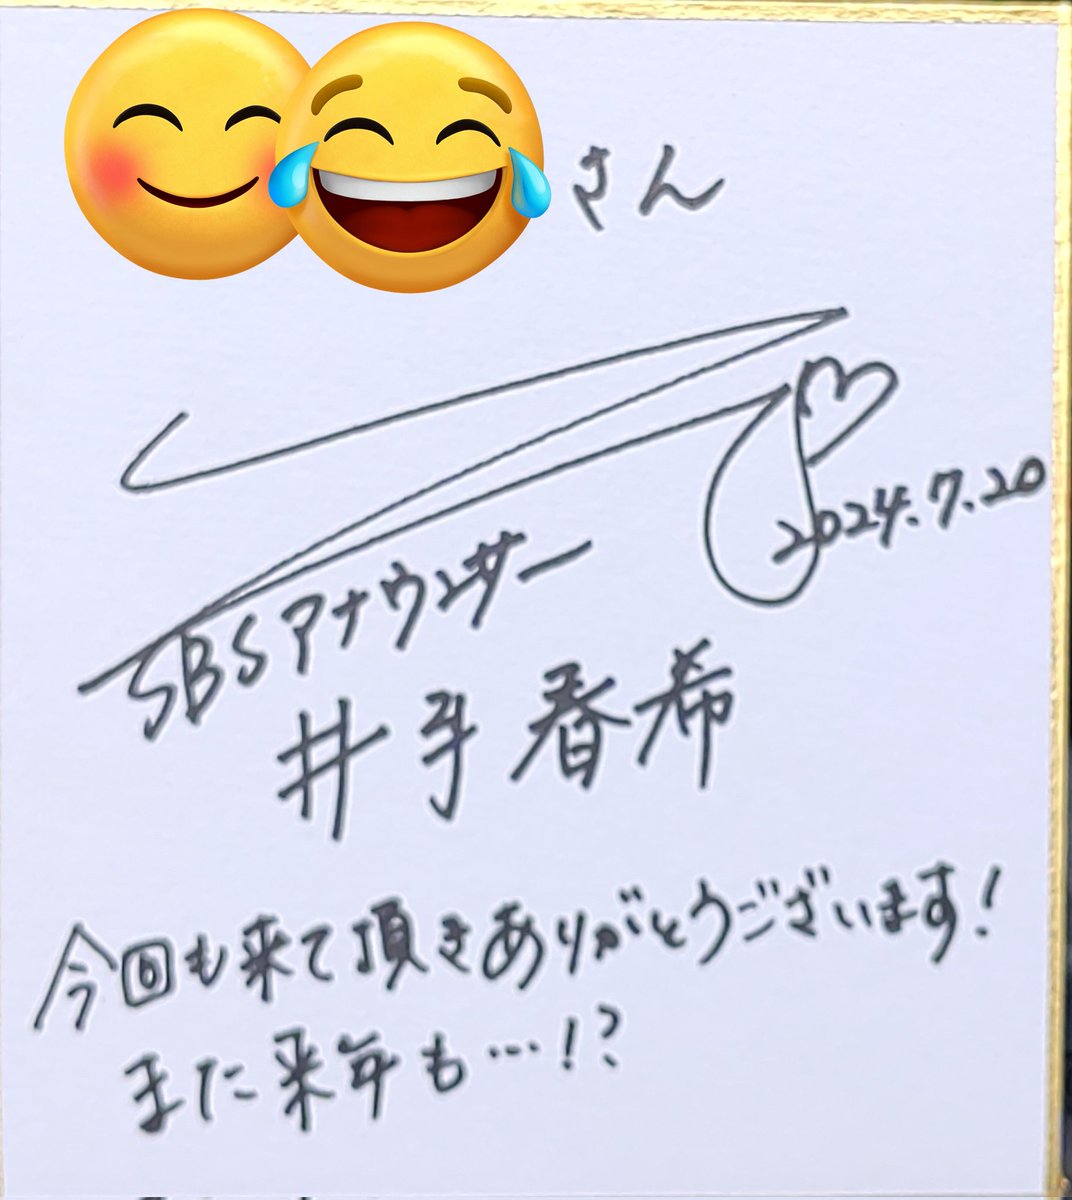 さん
2024.7.20
SBSアナウンサー
井手春希
今回も来て頂きありがとうございます!
また来年も…!?